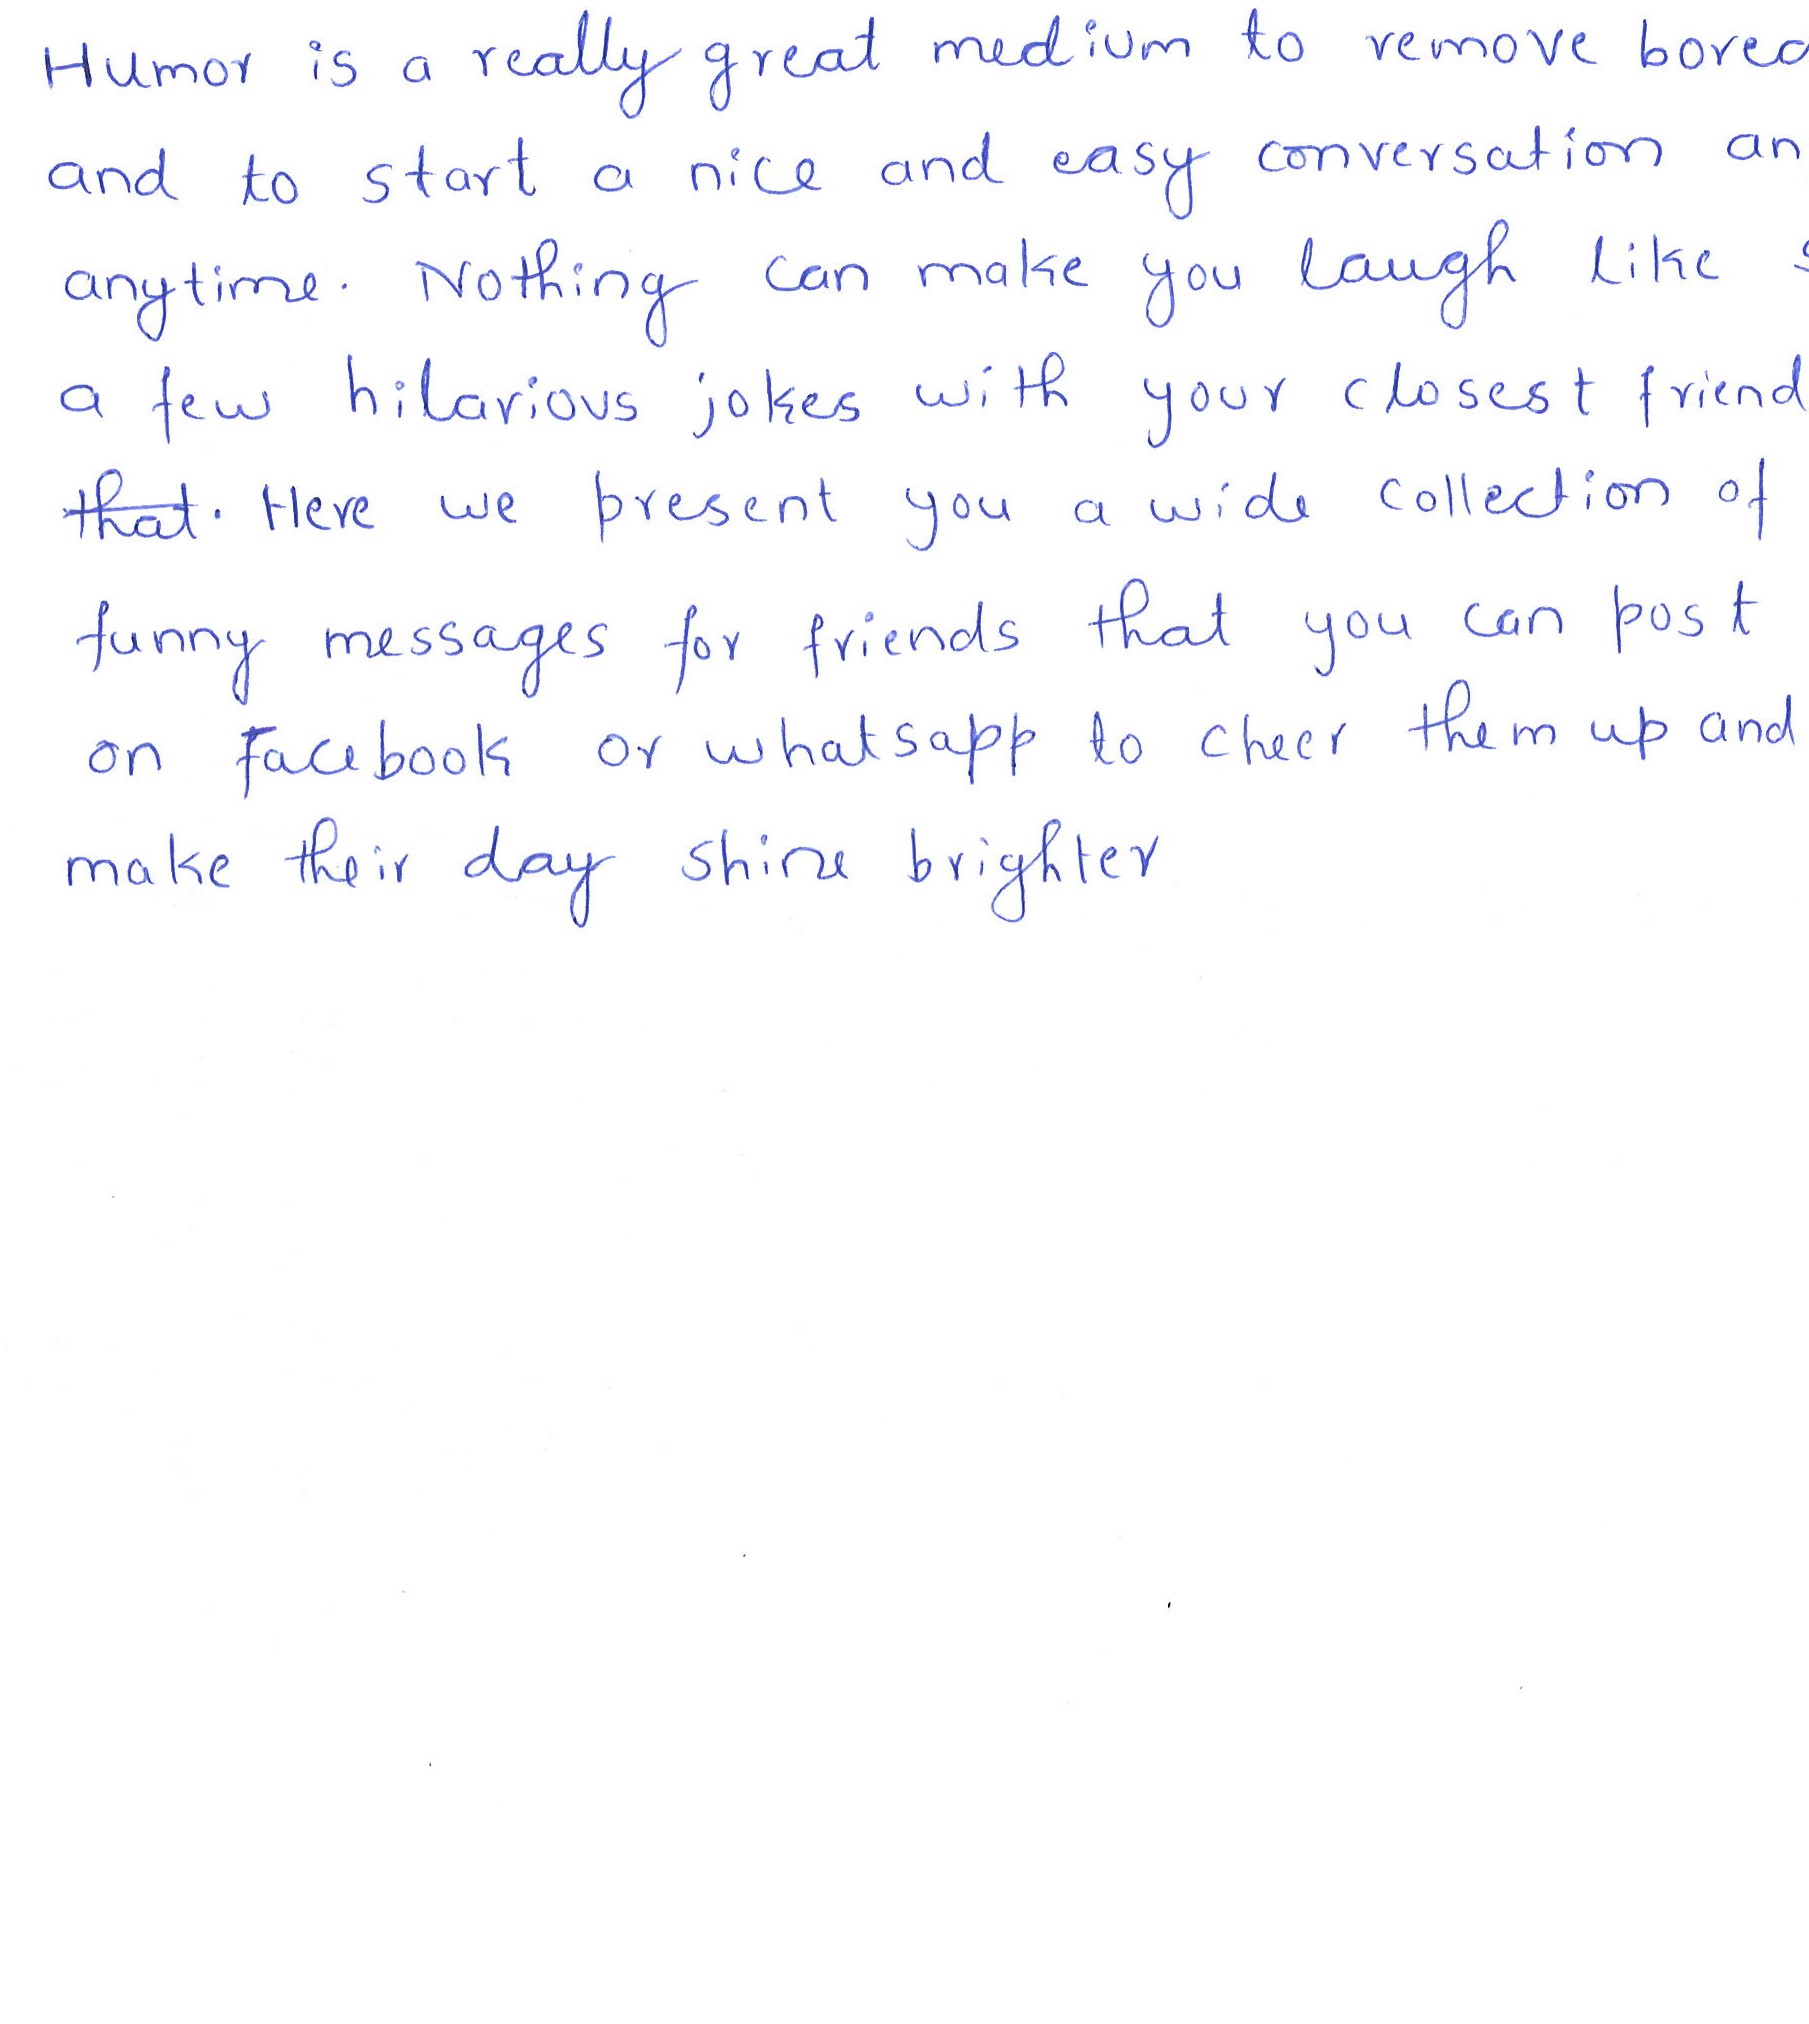 Humor is a really great medium to remove
and to start a nice and easy conversation
anytime. Nothing can make you laugh like
a few hilarious jokes with your closest friend
that. Here we present you a wide collection of
funny messages for friends that you can post
on Facebook or whatsapp to cheer them up and
make their day shine brighter